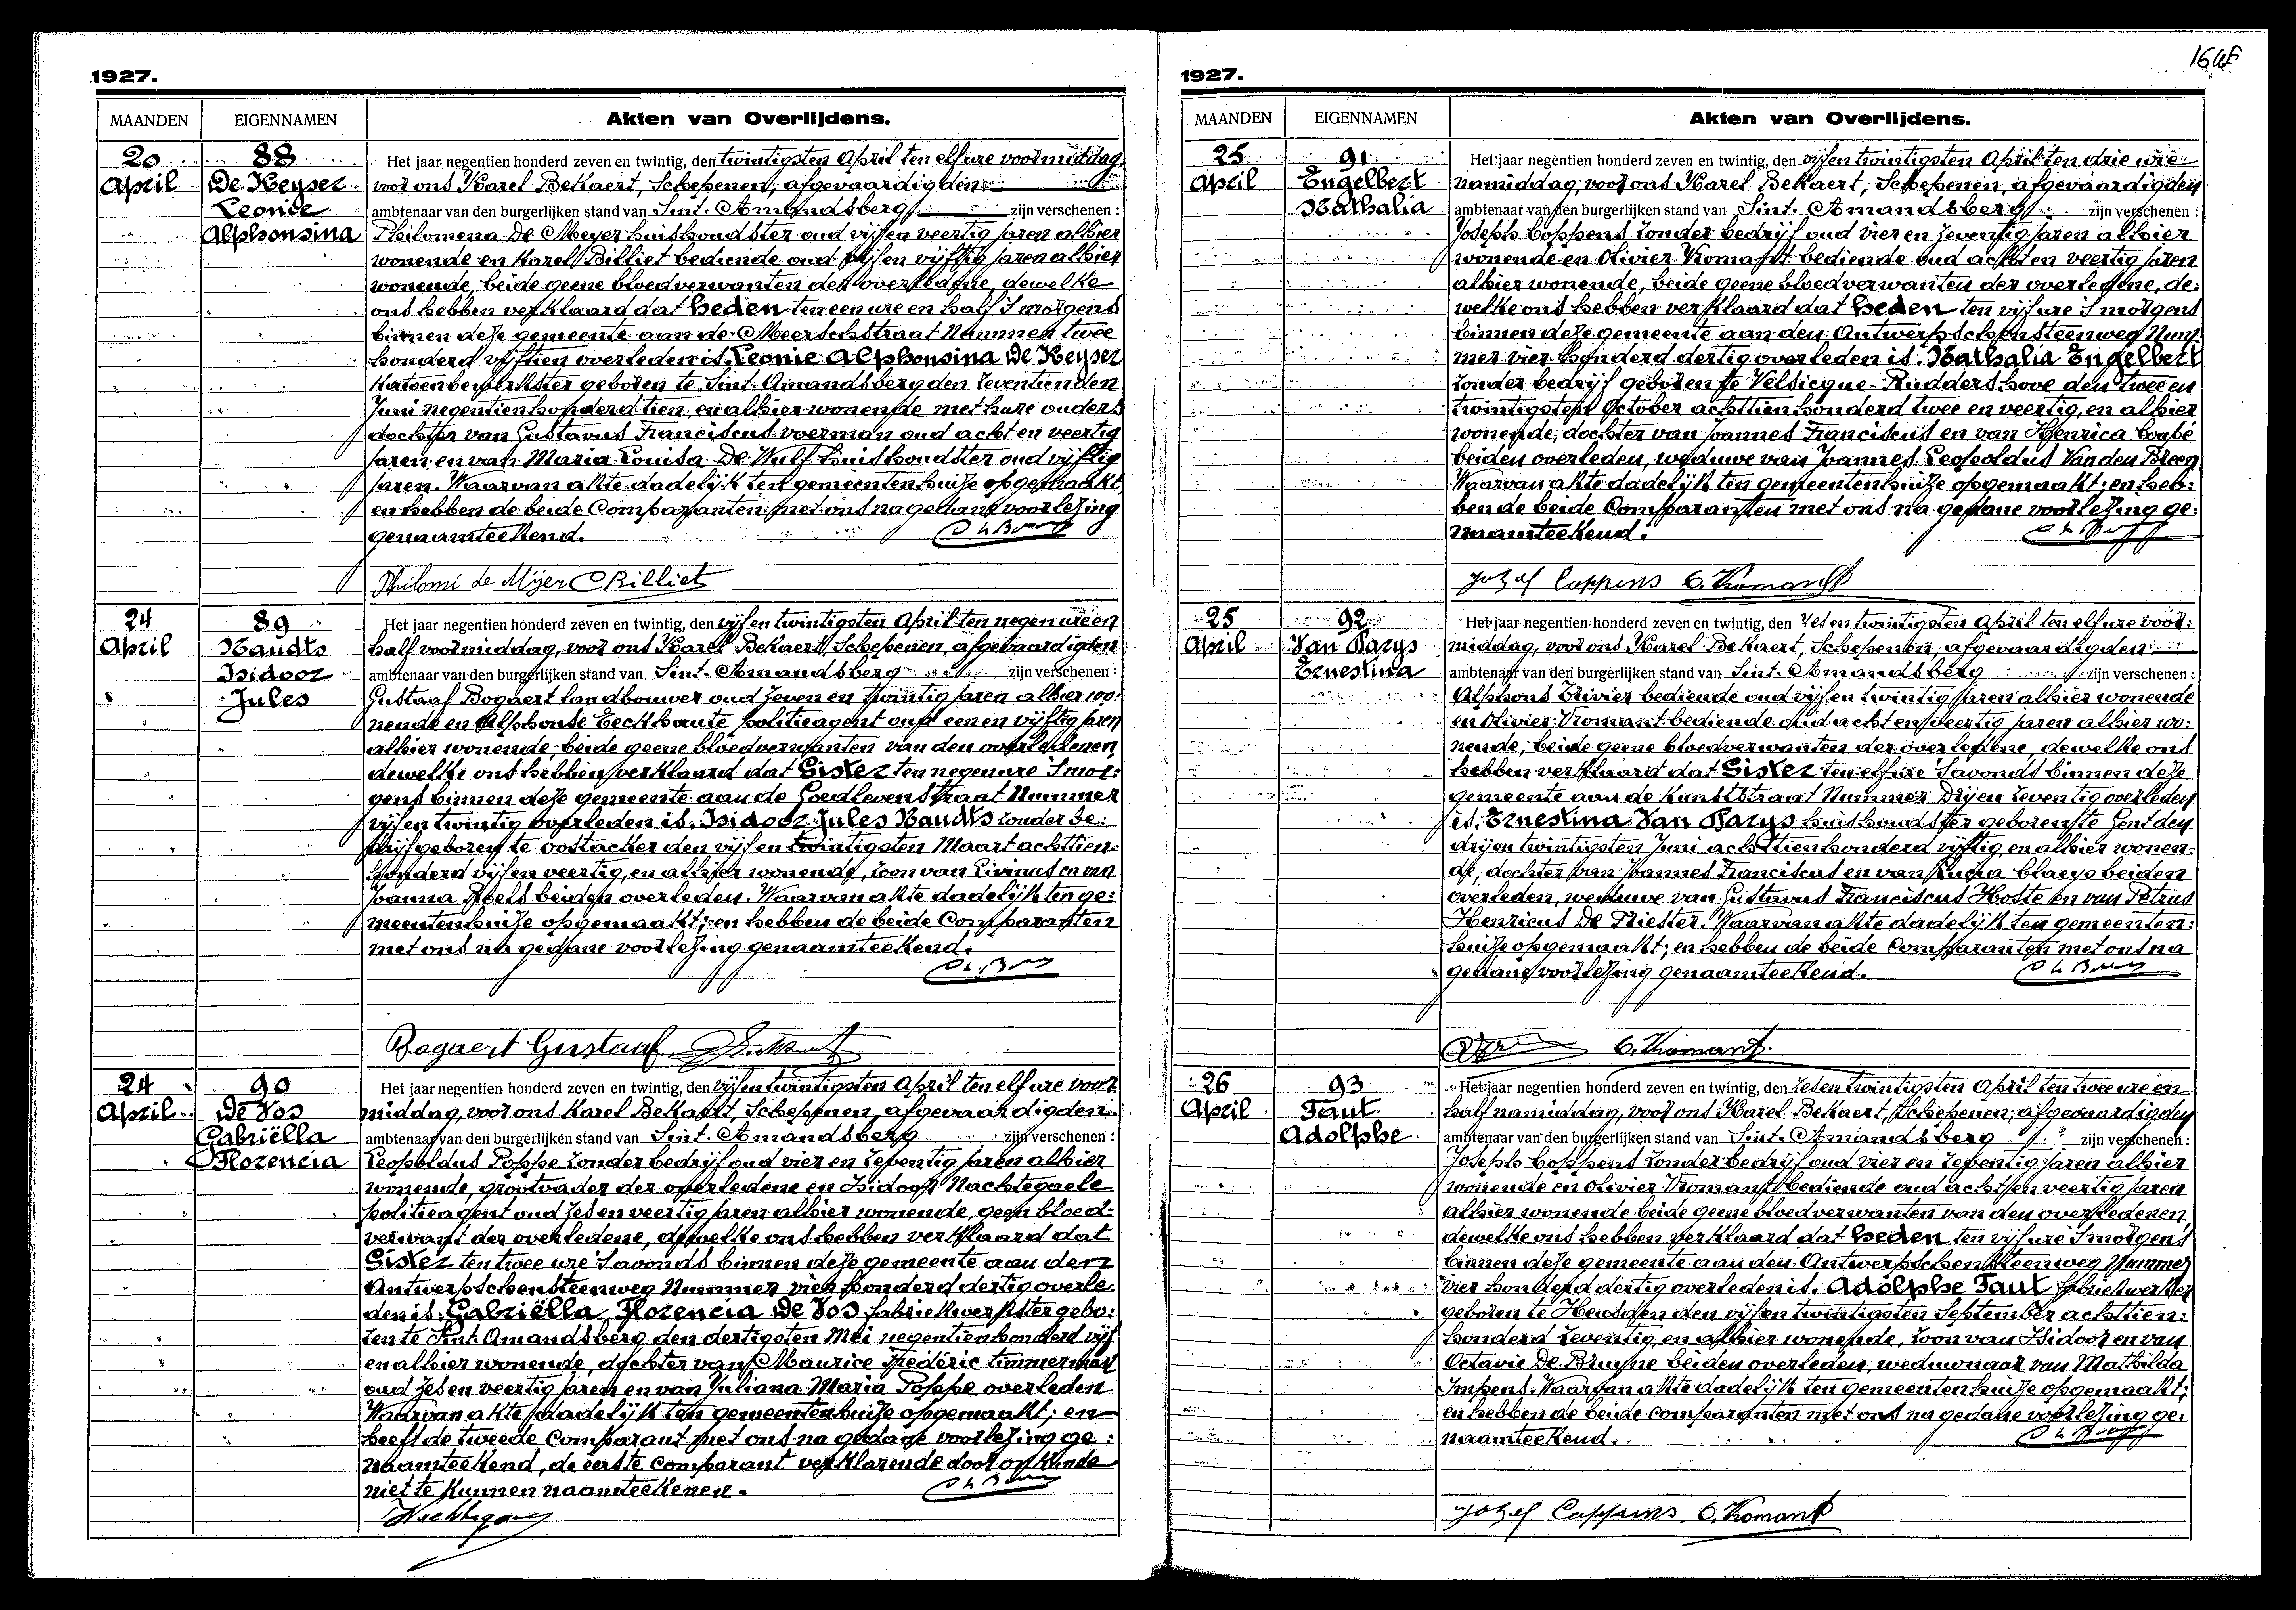 1927.
MAANDEN EIGENNAMEN Akten van Overlijdens.
20 April
88
De Keyser
Leonie
Alphonsina
Het jaar negentien honderd zeven en twintig, den twintigsten April ten elf ure voormiddag,
voor ons Karel Bekaert, Schepenen, afgevaardigden
ambtenaar van den burgerlijken stand van Sint-Amandsberg zijn verschenen :
Philomena De Meyer huishoudster oud vijf en veertig jaren alhier
wonende en Karel Billiet bediende oud vijf en vijftig jaren alhier
wonende, beide geene bloedverwanten der overledene, dewelke
ons hebben verklaard dat heden ten een ure en half 's morgens
binnen deze gemeente aan de Meerschstraat Nummer twee
honderd vijftien overleden is Leonie Alphonsina De Keyser
Katoenbewerkster geboren te Sint-Amandsberg den zeventienden
Juni negentien honderd tien, en alhier wonende met hare ouders
dochter van Gustavus Franciscus voerman oud acht en veertig
jaren en van Maria Louisa De Wulf huishoudster oud vijftig
jaren. Waarvan akte dadelijk ten gemeentenhuize opgemaakt,
en hebben de beide Comparanten met ons na gedane voorlezing
genaamteekend.
Philomi de Mijer C Billiet
24 April
89
Naudts
Isidoor
Jules
Het jaar negentien honderd zeven en twintig, den vijf en twintigsten April ten negen ure en
half voormiddag, voor ons Karel Bekaert, Schepenen, afgevaardigden
ambtenaar van den burgerlijken stand van Sint-Amandsberg zijn verschenen :
Gustaaf Bogaert landbouwer oud zeven en twintig jaren alhier wo:
nende en Alphonse Eeckhaute politieagent oud een en vijftig jaren
alhier wonende, beide geene bloedverwanten van den overledenen
dewelke ons hebben verklaard dat Gister ten negen ure 's mor:
gens binnen deze gemeente aan de Goedlevenstraat Nummer
vijf en twintig overleden is. Isidoor Jules Naudts zonder be:
drijf geboren te Oostacker den vijf en twintigsten Maart achttien:
honderd vijf en veertig, en alhier wonende, zoon van Livinus en van
Joanna Roels beiden overleden. Waarvan akte dadelijk ten ge:
meentenhuize opgemaakt; en hebben de beide Comparanten
met ons na gedane voorlezing genaamteekend.
Bogaert Gustaaf
24 April
90
De Vos
Gabriëlla
Florencia
Het jaar negentien honderd zeven en twintig, den vijf en twintigsten April ten elf ure voor
middag, voor ons Karel Bekaert, Schepenen, afgevaardigden
ambtenaar van den burgerlijken stand van Sint-Amandsberg zijn verschenen :
Leopoldus Poppe zonder bedrijf oud vier en zeventig jaren alhier
wonende, grootvader der overledene en Isidoor Nachtegaele
politieagent oud zes en veertig jaren alhier wonende, geen bloed:
verwant der overledene, dewelke ons hebben verklaard dat
Gister ten twee ure 's avonds binnen deze gemeente aan den
Antwerpschensteenweg Nummer vier honderd dertig overle:
den is. Gabriëlla Florencia De Vos fabriekwerkster gebo:
ren te Sint-Amandsberg den dertigsten Mei negentien honderd vijf
en alhier wonende, dochter van Maurice Frédéric timmerman
oud zes en veertig jaren en van Juliana Maria Poppe overleden
Waarvan akte dadelijk ten gemeentenhuize opgemaakt; en
heeft de tweede Comparant met ons na gedane voorlezing ge:
naamteekend, de eerste Comparant verklarende door onkunde
niet te kunnen naamteekenen.
1927.
MAANDEN EIGENNAMEN Akten van Overlijdens.
25 April
91
Engelbert
Nathalia
Het jaar negentien honderd zeven en twintig, den vijf en twintigsten April ten drie ure
namiddag, voor ons Karel Bekaert, Schepenen, afgevaardigden
ambtenaar van den burgerlijken stand van Sint-Amandsberg zijn verschenen :
Joseph Coppens zonder bedrijf oud vier en zeventig jaren alhier
wonende en Olivier Vromant bediende oud acht en veertig jaren
alhier wonende, beide geene bloedverwanten der overledene, de:
welke ons hebben verklaard dat heden ten vijf ure 's morgens
binnen deze gemeente aan den Antwerpschensteenweg Num:
mer vier honderd dertig overleden is. Nathalia Engelbert
zonder bedrijf geboren te Velsicque-Ruddershove den twee en
twintigsten October achttien honderd twee en veertig, en alhier
wonende, dochter van Joannes Franciscus en van Henrica Coupé
beiden overleden, weduwe van Joannes Leopoldus Van den Breen
Waarvan akte dadelijk ten gemeentenhuize opgemaakt; en heb:
ben de beide Comparanten met ons na gedane voorlezing ge:
naamteekend.
Jozef Coppens O. Vromant
25 April
92
Van Parys
Ernestina
Het jaar negentien honderd zeven en twintig, den zes en twintigsten April ten elf ure voor:
middag, voor ons Karel Bekaert, Schepenen, afgevaardigden
ambtenaar van den burgerlijken stand van Sint-Amandsberg zijn verschenen :
Alphons bediende oud vijf en twintig jaren alhier wonende
en Olivier Vromant bediende oud acht en veertig jaren alhier wo:
nende, beide geene bloedverwanten der overledene, dewelke ons
hebben verklaard dat Gister ten elf ure 's avonds binnen deze
gemeente aan de Kunststraat Nummer Drij en zeventig overleden
is. Ernestina Van Parys huishoudster geboren te Gent den
drij en twintigsten Juni achttien honderd vijftig, en alhier wonen:
de, dochter van Joannes Franciscus en van Lucia Claeys beiden
overleden, weduwe van Gustavus Franciscus Hoste en van Petrus
Henricus De Triester. Waarvan akte dadelijk ten gemeenten:
huize opgemaakt; en hebben de beide Comparanten met ons na
gedane voorlezing genaamteekend.
O. Vromant
26 April
93
Taut
Adolphe
Het jaar negentien honderd zeven en twintig, den zes en twintigsten April ten twee ure en
half namiddag, voor ons Karel Bekaert, Schepenen, afgevaardigden
ambtenaar van den burgerlijken stand van Sint-Amandsberg zijn verschenen :
Joseph Coppens zonder bedrijf oud vier en zeventig jaren alhier
wonende en Olivier Vromant bediende oud acht en veertig jaren
alhier wonende beide geene bloedverwanten van den overledenen,
dewelke ons hebben verklaard dat heden ten vijf ure 's morgens
binnen deze gemeente aan den Antwerpschensteenweg Nummer
vier honderd dertig overleden is. Adolphe Taut fabriekwerker
geboren te Heusden den vijf en twintigsten September achttien:
honderd zeventig, en alhier wonende, zoon van Isidoor en van
Octavie De Bruyne beiden overleden, weduwnaar van Mathilda
Impens. Waarvan akte dadelijk ten gemeentenhuize opgemaakt;
en hebben de beide comparanten met ons na gedane voorlezing ge:
naamteekend.
Jozef Coppens O. Vromant